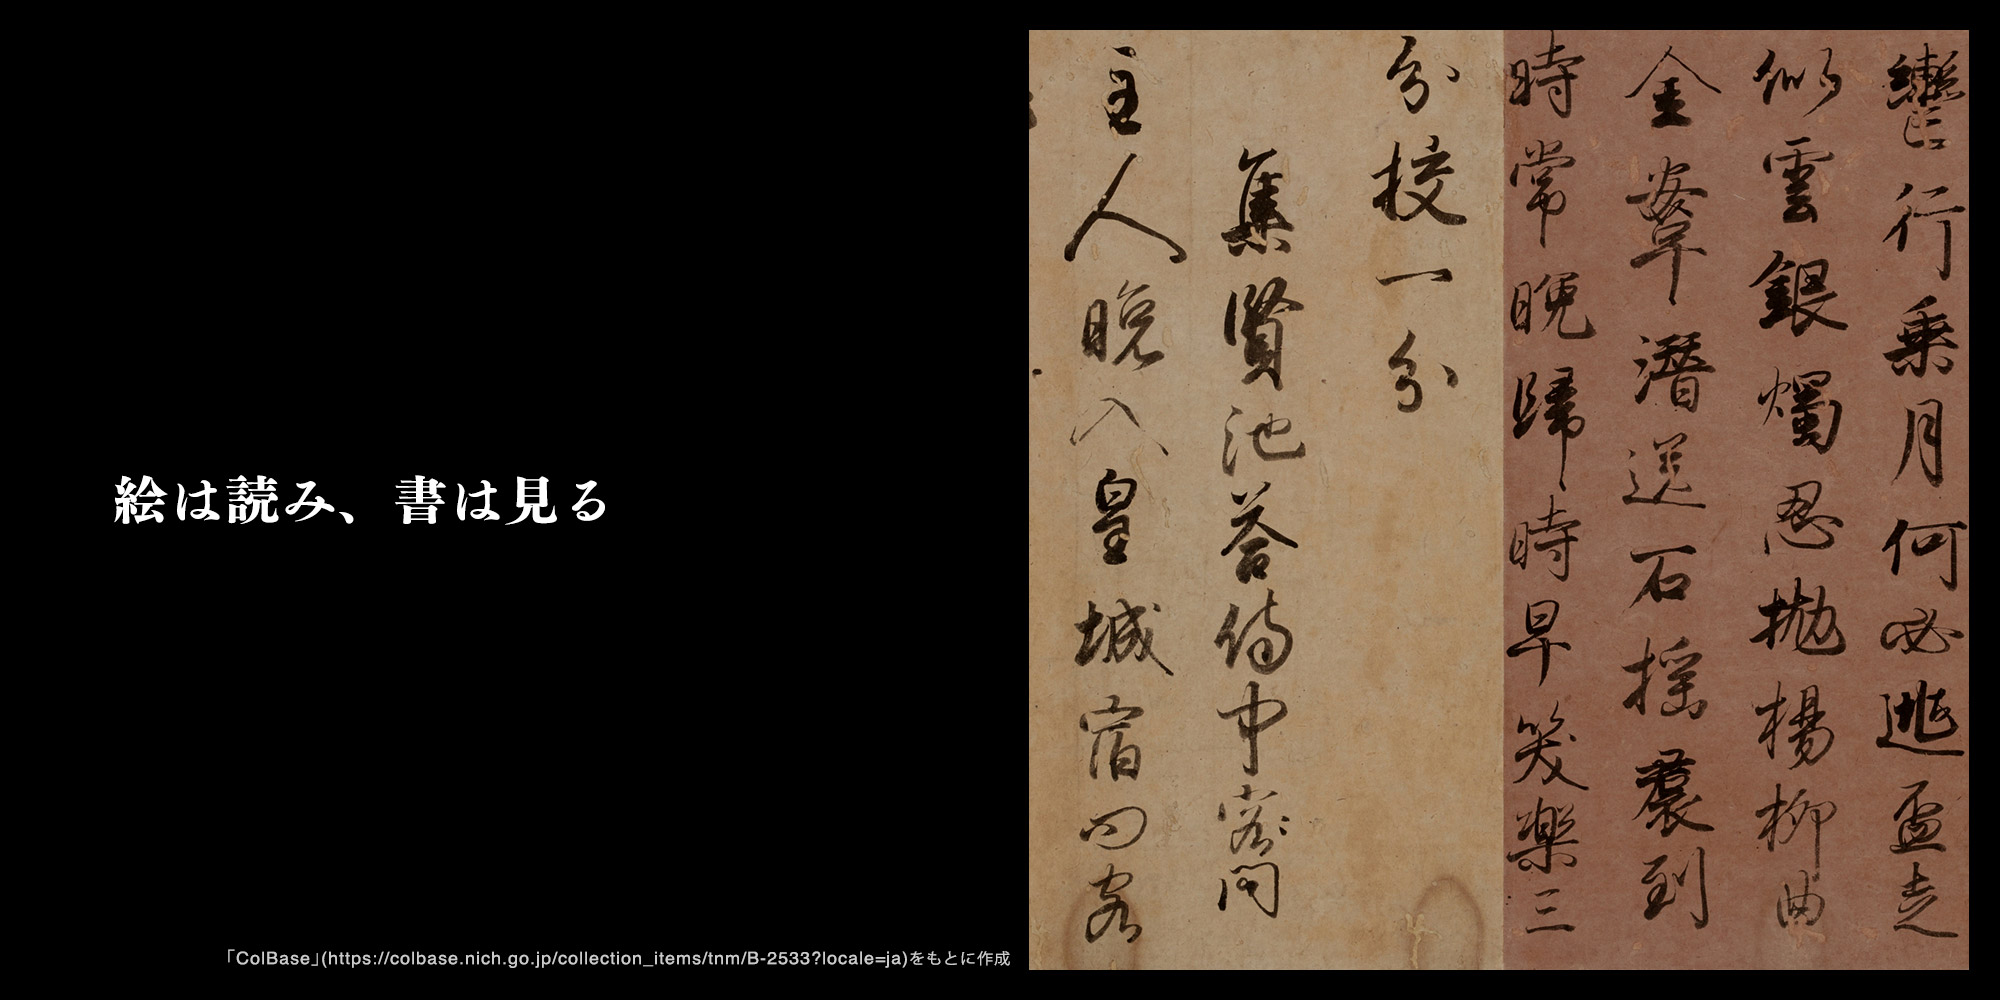 絵は読み、書は見る
轡行乗月何必逃盃走
似雲銀燭忍抛楊柳曲
金鞍潜送石榴裙到
時常晩歸時早笑楽三
分校一分
集賢池答侍中客問
主人晩入皇城宿問客
「ColBase」(https://colbase.nich.go.jp/collection_items/tnm/B-2533?locale=ja)をもとに作成